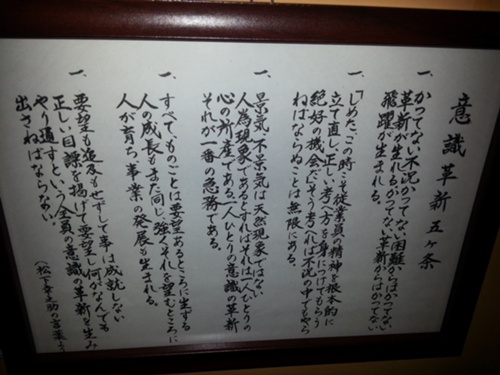 意識革新五ヶ条
一、かつてない不況かつてない困難からはかつてない
革新が生れるかつてない革新からはかつてない
飛躍が生まれる。
一、「しめた、この時こそ従業員の精神を根本的に
立て直し、正しい考え方を身につけてもらう
絶好の機会だ」そう考へれば不況の中でもやら
ねばならぬことは無限にある。
一、景気、不景気は天然現象ではない
人為現象であるとすればそれは一人ひとりの
心の所産である、一人ひとりの意識の革新
それが一番の急務である。
一、すべて、ものごとは要望あるところに生ずる
人の成長もまた同じ、強くそれを望むところに
人が育ち、事業の発展も生まれる。
一、要望も追及もせずして事は成就しない
正しい目標を掲げて要望し、何がなんでも
やり通すという全員の意識の革新を生み
出さねばならない。
（松下幸之助の言葉より